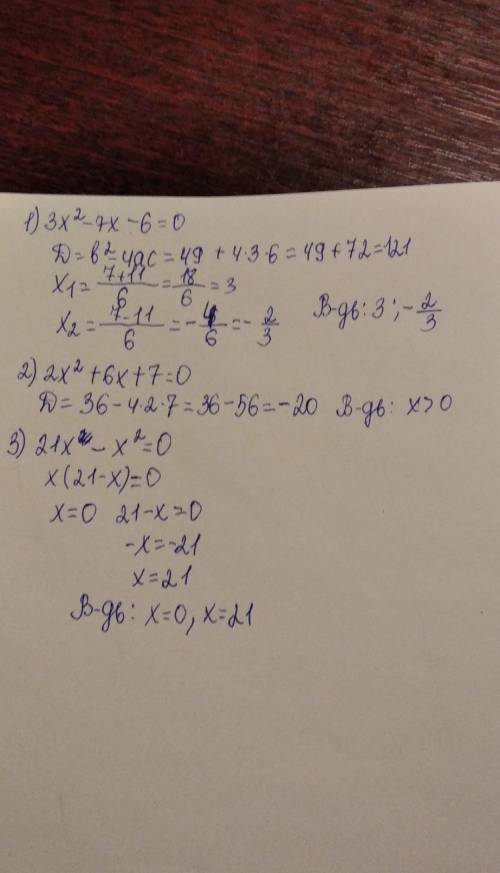 1) 3x² - 7x - 6 = 0
Д = b² - 4ac = 49 + 4·3·6 = 49 + 72 = 121
x₁ = (7+11)/6 = 18/6 = 3
x₂ = (7-11)/6 = -4/6 = -2/3 В-дь: 3; -2/3
2) 2x² + 6x + 7 = 0
Д = 36 - 4·2·7 = 36 - 56 = -20 В-дь: x > 0
3) 21x - x² = 0
x(21-x) = 0
x = 0 21 - x = 0
-x = -21
x = 21
В-дь: x = 0, x = 21